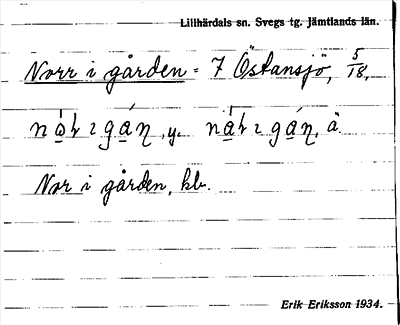 Lillhärdals sn. Svegs tg. Jämtlands län.
Norr i gården = 7 Östansjö, 5/18,
Nor i gården, kb.
Erik Eriksson 1934.